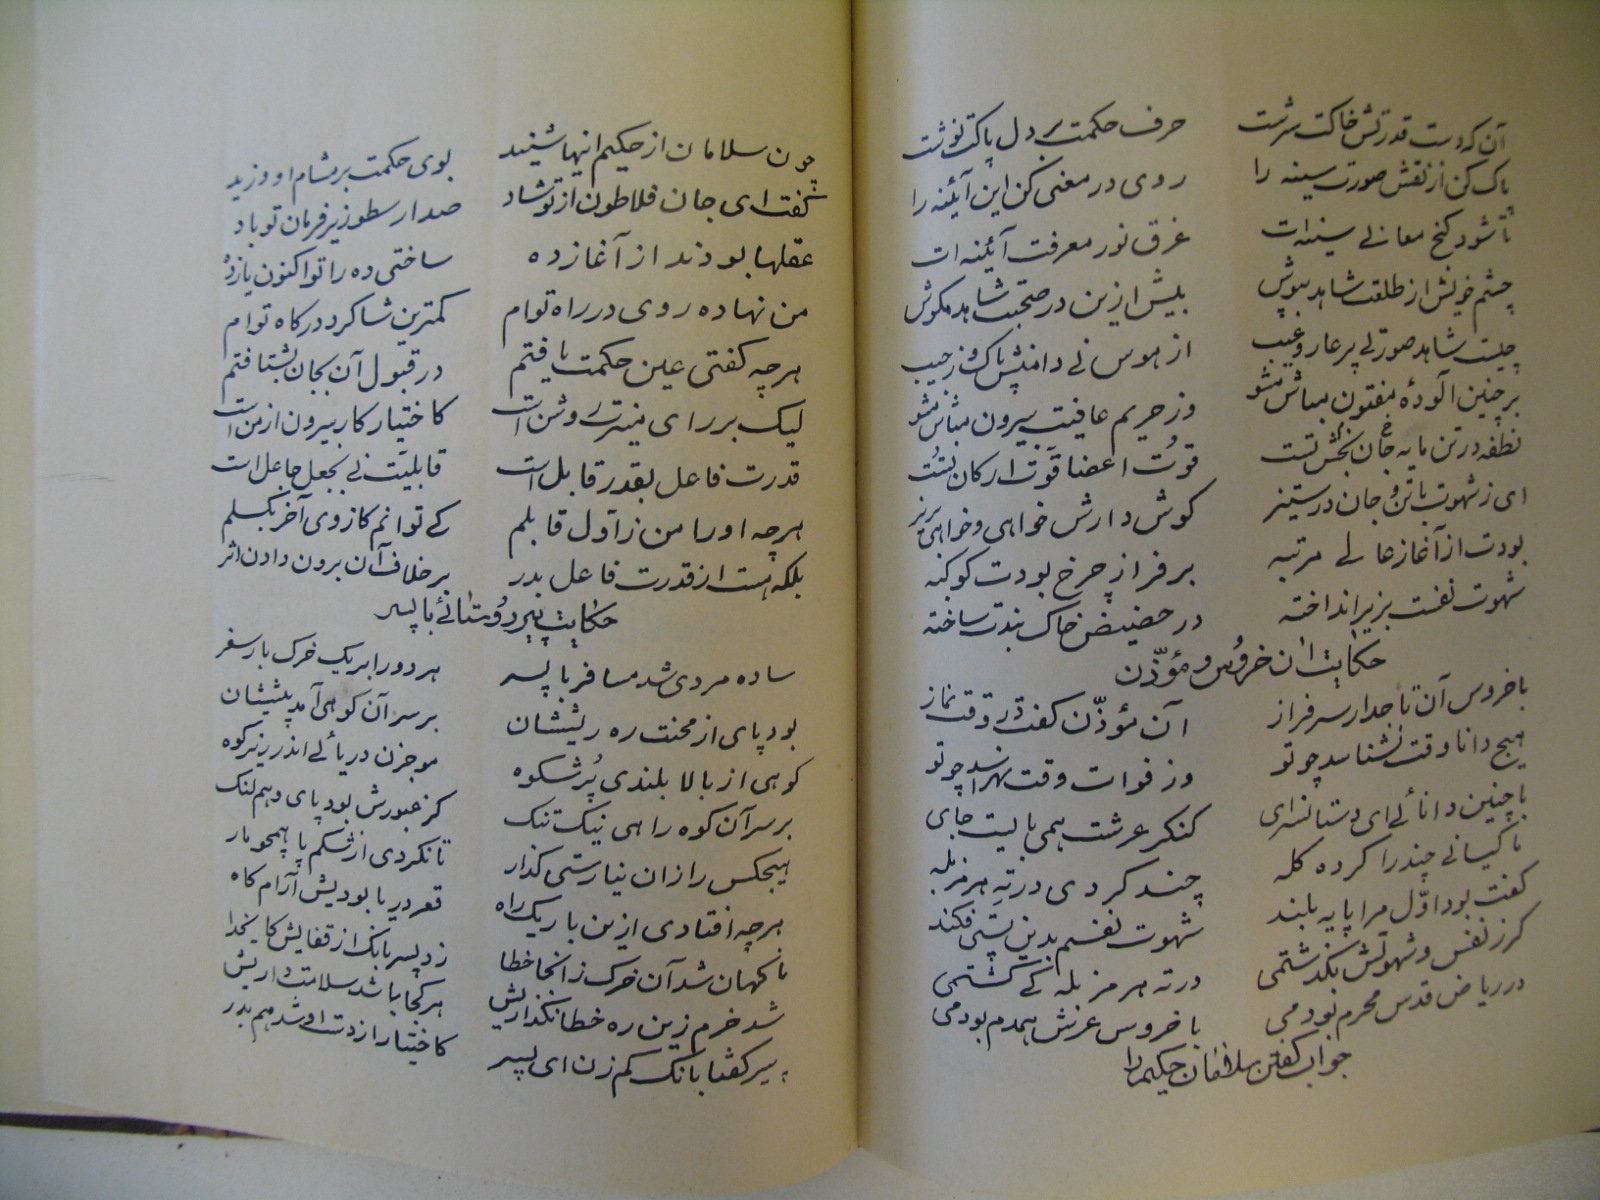 آن که دست قدرتش خاکت سرشت حرف حکمت بر دل پاکت نوشت
پاک کن از نقش صورت سینه را روی در معنی کن این آئینه را
تا شود گنج معانی سینه‌ات غرق نور معرفت آئینه‌ات
چشم خویش از طلعت شاهد بپوش بیش ازین در صحبت شاهد مکوش
چیست شاهد صورتی پر عار و عیب از هوس نی دامنش پاک و نه جیب
بر چنین آلودهٔ مفتون مباش مشو وز حریم عافیت بیرون مباش مشو
نطفه در تن مایه جان بخش تست قوت اعضا قوّت ارکان تست
ای ز شهوت با تن و جان در ستیز گوش دارش خواهی و خواهی بریز
بودت از آغاز عالی مرتبه بر فراز چرخ بودت کوکبه
شهوت نفست بزیر انداخته در حضیض خاک بندت ساخته
حکایت ان خروس و مؤذّن
با خروس آن تاجدار سرفراز آن مؤذّن گفت در وقت نماز
هیچ دانا وقت نشناسد چو تو وز فوات وقت نهراسد چو تو
با چنین دانائی ای دستانسرای کنکر عرشت همی بایست جای
ماکیانی چند را کرده کله چند کردی در ته هر مزبله
گفت بود اوّل مرا پایه بلند شهوت نفسم بدین پستی فکند
گر ز نفس و شهوتش بگذشتمی در ته هر مزبله کی گشتمی
در ریاض قدس محرم بودمی با خروس عرش همدم بودمی
جواب گفتن سلامان حکیم را
چون سلامان از حکیم اینها شنید بوی حکمت بر مشام او وزید
گفت ای جان فلاطون از تو شاد صد ارسطو زیر فرمان تو باد
عقلها بودند از آغاز ده ساختی ده را تو اکنون یازده
من نهاده روی در راه توام کمترین شاکرد درکاه توام
هرچه گفتی عین حکمت یافتم در قبول آن بجان بشتافتم
لیک بر رای منیرت روشن است کاختیار کار بیرون از من است
قدرت فاعل بقدر قابل است قابلیّت نی بجعل جاعل است
هرچه او را من ز اوّل قابلم کی توانم کاز وی آخر بگسلم
بلکه هست از قدرت فاعل بدر بر خلاف آن برون دادن اثر
حکایت پیر روستائی با پسر
ساده مردی شد مسافر با پسر هر دو را بر یک خرک بار سفر
بود پای از محنت ره ریششان بر سر آن کوهی آمد پیششان
کوهی از بالا بلندی پُر شکوه موج‌زن دریائی اندر زیر کوه
بر سر آن کوه راهی نیک تنک کز عبورش بود پای وهم لنک
هیچکس را زان نیارستی گذار تا نکردی از شکم پا همچو مار
هرچه افتادی ازین باریک راه قعر دریا بودیش آرام کاه
ناکهان شد آن خرک زانجا خطا زد پسر بانک از قفایش کایخدا
شد خرم زین ره خطا نگذاریش هر کجا باشد سلامت داریش
پیر گفتا بانک کم زن ای پسر کاختیار از دست او شد هم بدر